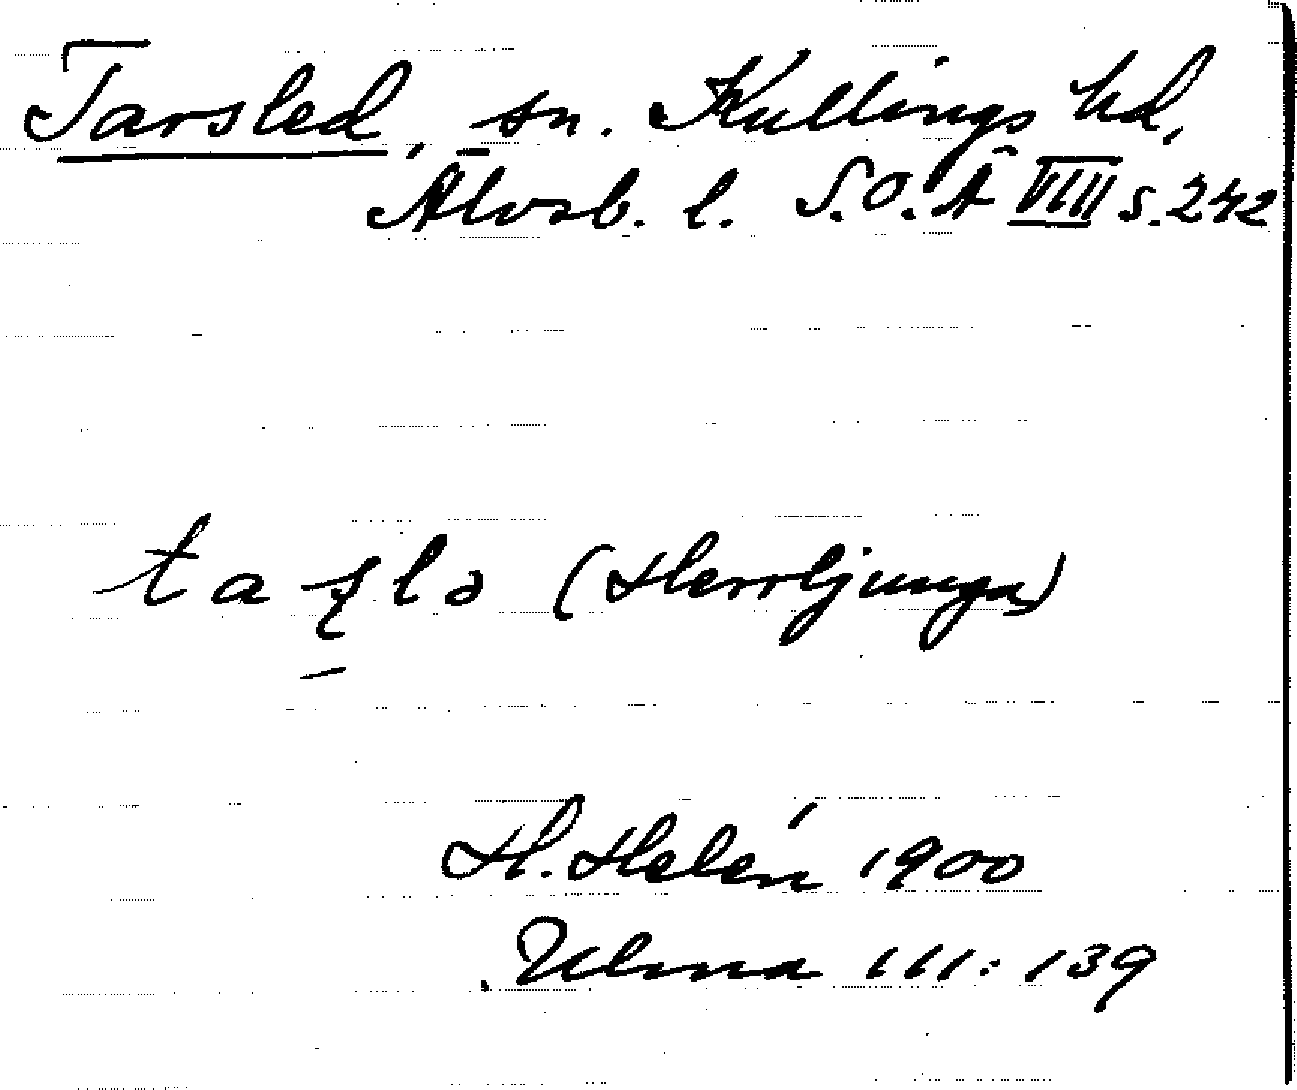 Tarsled, sn. Kullings hd,
Älvsb. l. S.O.Ä VIII s. 242
ta ʂ lə (Herrljunga)
H. Helén 1900
Ulma 111:139